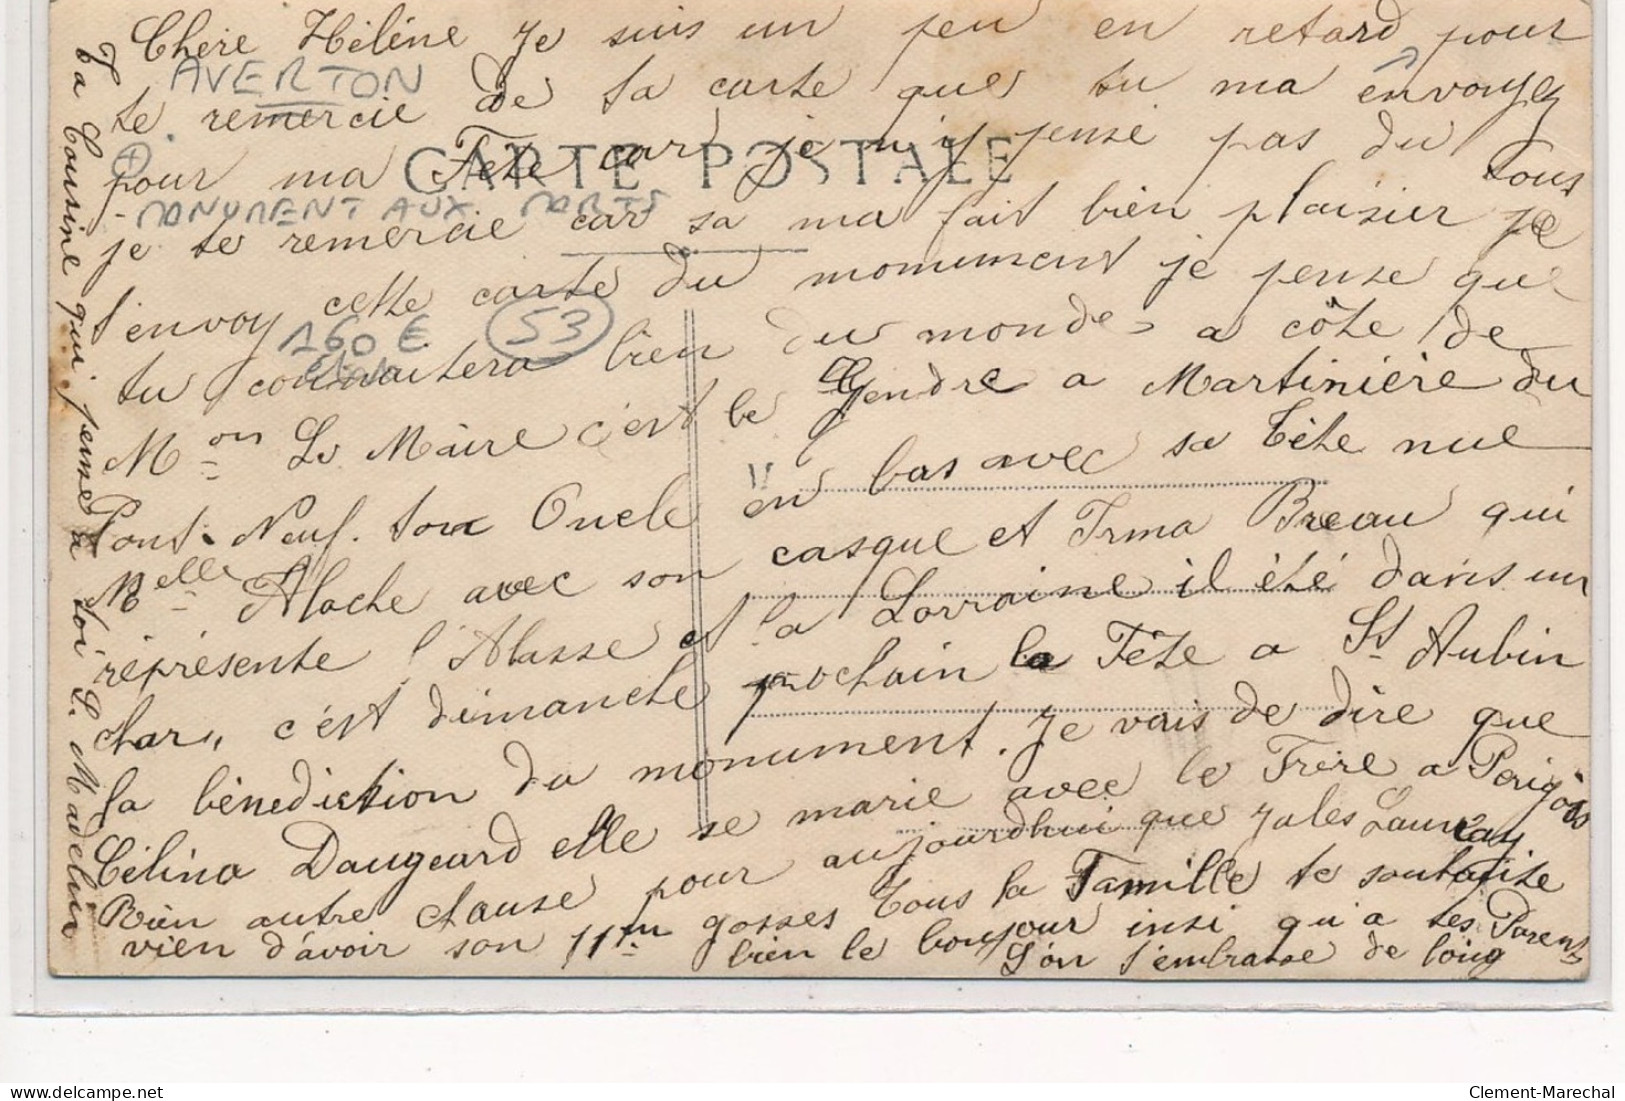 Chère Hélène je suis un peu en retard pour
AVERTON
te remercie de ta carte que tu ma envoyez
pour ma Fete car je n'y pense pas du tous
CARTE POSTALE
MONUMENT AUX MORTS
je te remercie car sa ma fait bien plaisir je
t'envoy cette carte du monument je pense que
160 € 53
tu connaitera bien du monde a côte de
Mon Le Maire c'est le Gendre a Martinière du
Pont-Neuf. ton Oncle en bas avec sa tête nue
Melle Aloche avec son casque et Irma Breau qui
représente l'Alasse et la Lorraine il été dans un
char, c'est dimanche prochain la Fête a St Aubin
la bénediction du monument. Je vais de dire que
Célina Daugeard elle se marie avec le Frère a Perigois
Rien autre chause pour aujourdhui que Jules Launay
vien d'avoir son 11m gosses Tous la Famille te souhaite
bien le bonjour insi qu'a tes Parents
L'on t'embrasse de loing
Ta Cousine qui pense a toi L. Madelin
Clement-Marechal